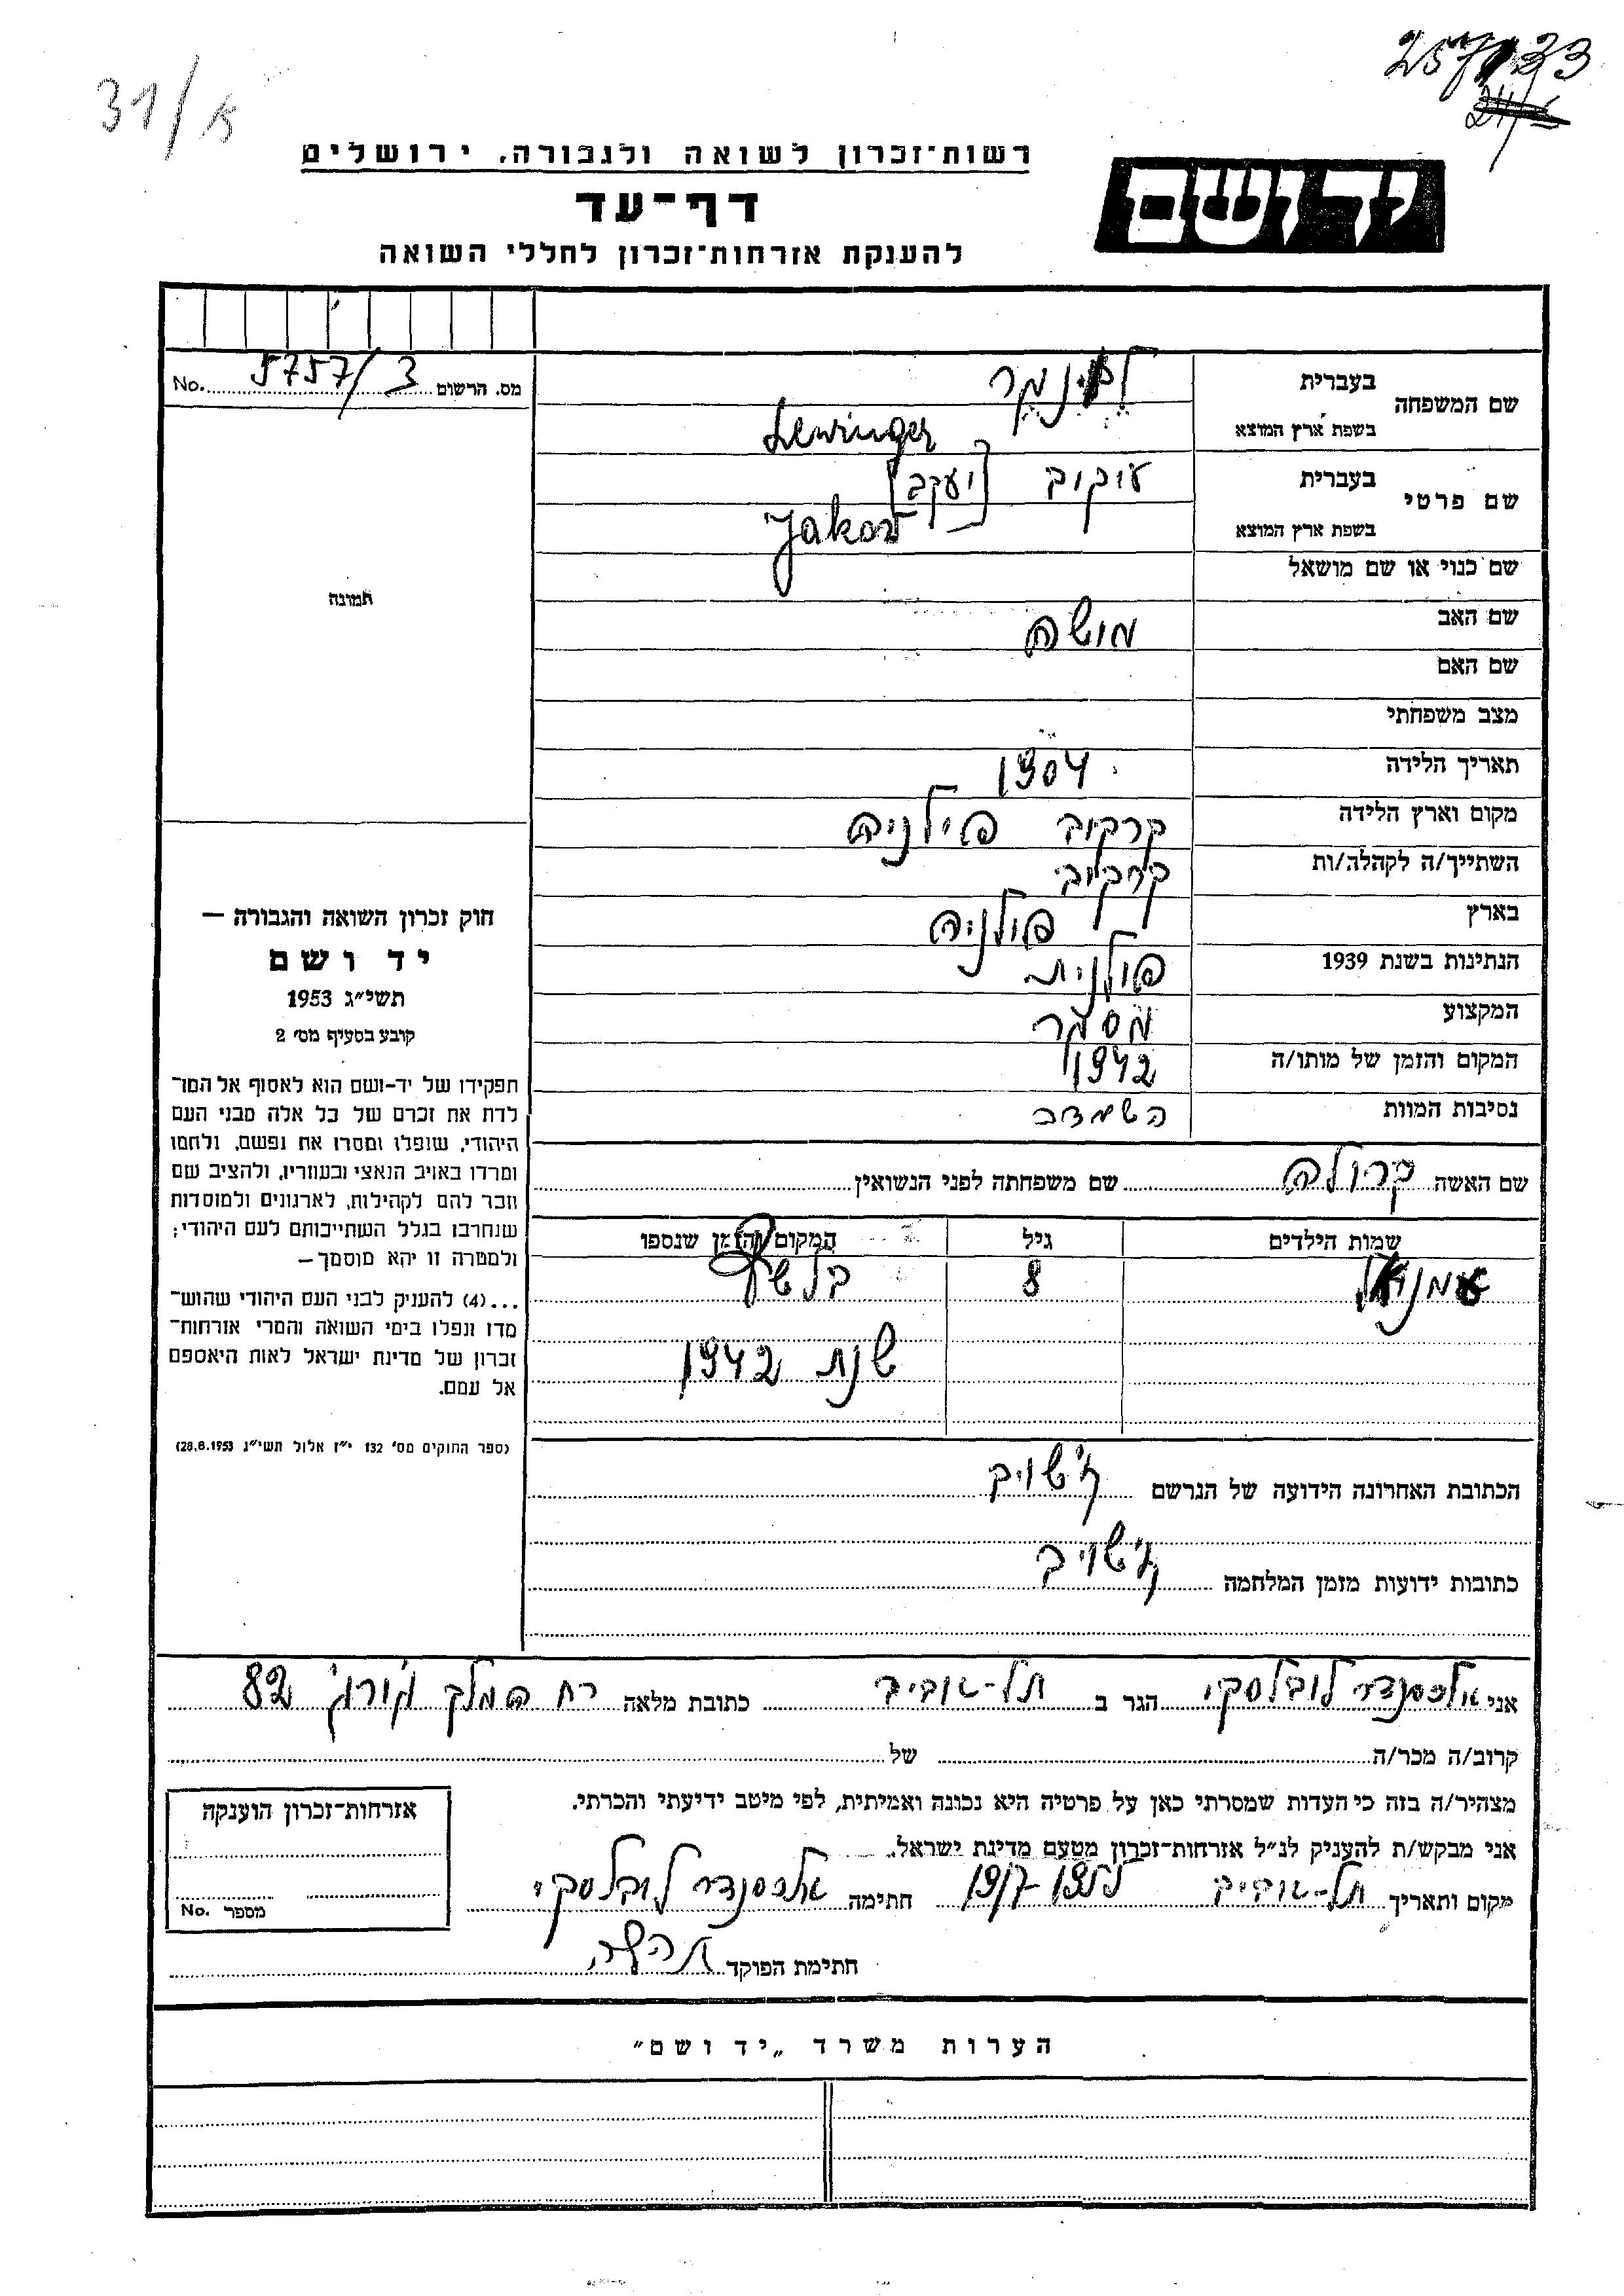 257133
31/א
רשות־זכרון לשואה ולגבורה, ירושלים
יד ושם
דף־עד
להענקת אזרחות־זכרון לחללי השואה
מס. הרשום 5757/3 No.
שם המשפחה
בעברית
בשפת ארץ המוצא
Lewinger
שם פרטי
בעברית יעקב [יעקב]
בשפת ארץ המוצא Jakob
שם כנוי או שם מושאל
תמונה
שם האב מושה
שם האם
מצב משפחתי
תאריך הלידה 1904
מקום וארץ הלידה קרקוב פולניה
השתייך/ה לקהלה/ות קרקוב
בארץ פולניה
הנתינות בשנת 1939 פולנית
המקצוע מסגר
המקום והזמן של מותו/ה 1942
נסיבות המוות
חוק זכרון השואה והגבורה —
יד ושם
תשי״ג 1953
קובע בסעיף מס׳ 2
תפקידו של יד־ושם הוא לאסוף אל המו־
לדת את זכרם של כל אלה מבני העם
היהודי, שנפלו ומסרו את נפשם, נלחמו
ומרדו באויב הנאצי ובעוזריו, ולהציב שם
וזכר להם לקהילות, לארגונים ולמוסדות
שנחרבו בגלל השתייכותם לעם היהודי;
ולמטרה זו יהא מוסמך—
...(4) להענין לבני העם היהודי שהוש־
מדו ונפלו בימי השואה והמרי אזרחות־
זכרון של מדינת ישראל לאות היאספם
אל עמם.
(ספר החוקים מס׳ 132 י״ז אלול תשי״ג 28.8.1953)
שם האשה קרולה שם משפחתה לפני הנשואין
שמות הילדים גיל המקום והזמן שנספו
עמנואל 8
שנת 1942
הכתובת האחרונה הידועה של הנרשם ז׳שוב
כתובות ידועות מזמן המלחמה ז׳שוב
אני אלכסנדר לובלסקי הגר ב תל-אביב כתובת מלאה רח המלך ג׳ורג׳ 82
קרוב/ה מכר/ה של
מצהיר/ה בזה כי העדות שמסרתי כאן על פרטיה היא נכונה ואמיתית, לפי מיטב ידיעתי והכרתי.
אני מבקש/ת להעניק לנ״ל אזרחות־זכרון מטעם מדינת ישראל.
מקום ותאריך תל-אביב 19/7-1955 חתימה אלכסנדר לובלסקי
חתימת הפוקד
אזרחות־זכרון הוענקה
מספר No.
הערות משרד „יד ושם״